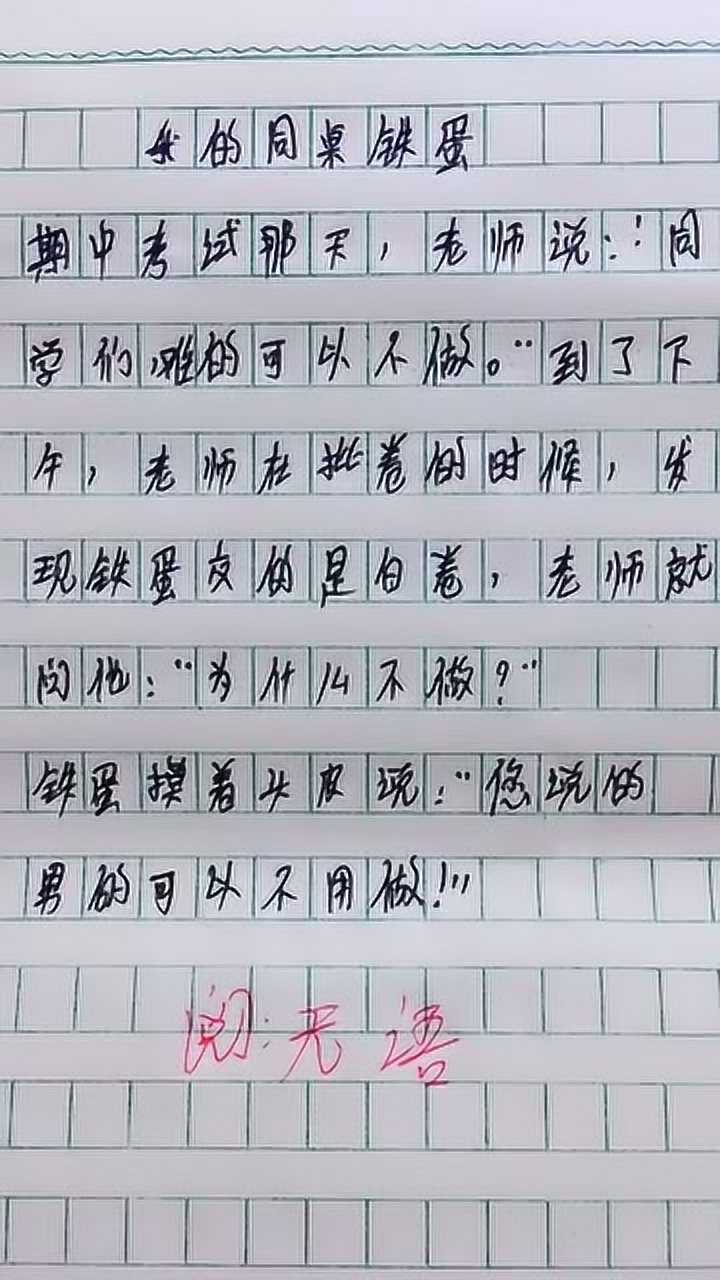 我的同桌铁蛋
期中考试那天，老师说：“同
学们，难的可以不做。”到了下
午，老师在批卷的时候，发
现铁蛋交的是白卷，老师就
问他：“为什么不做？”
铁蛋摸着头皮说：“您说的
男的可以不用做！”
阅：无语